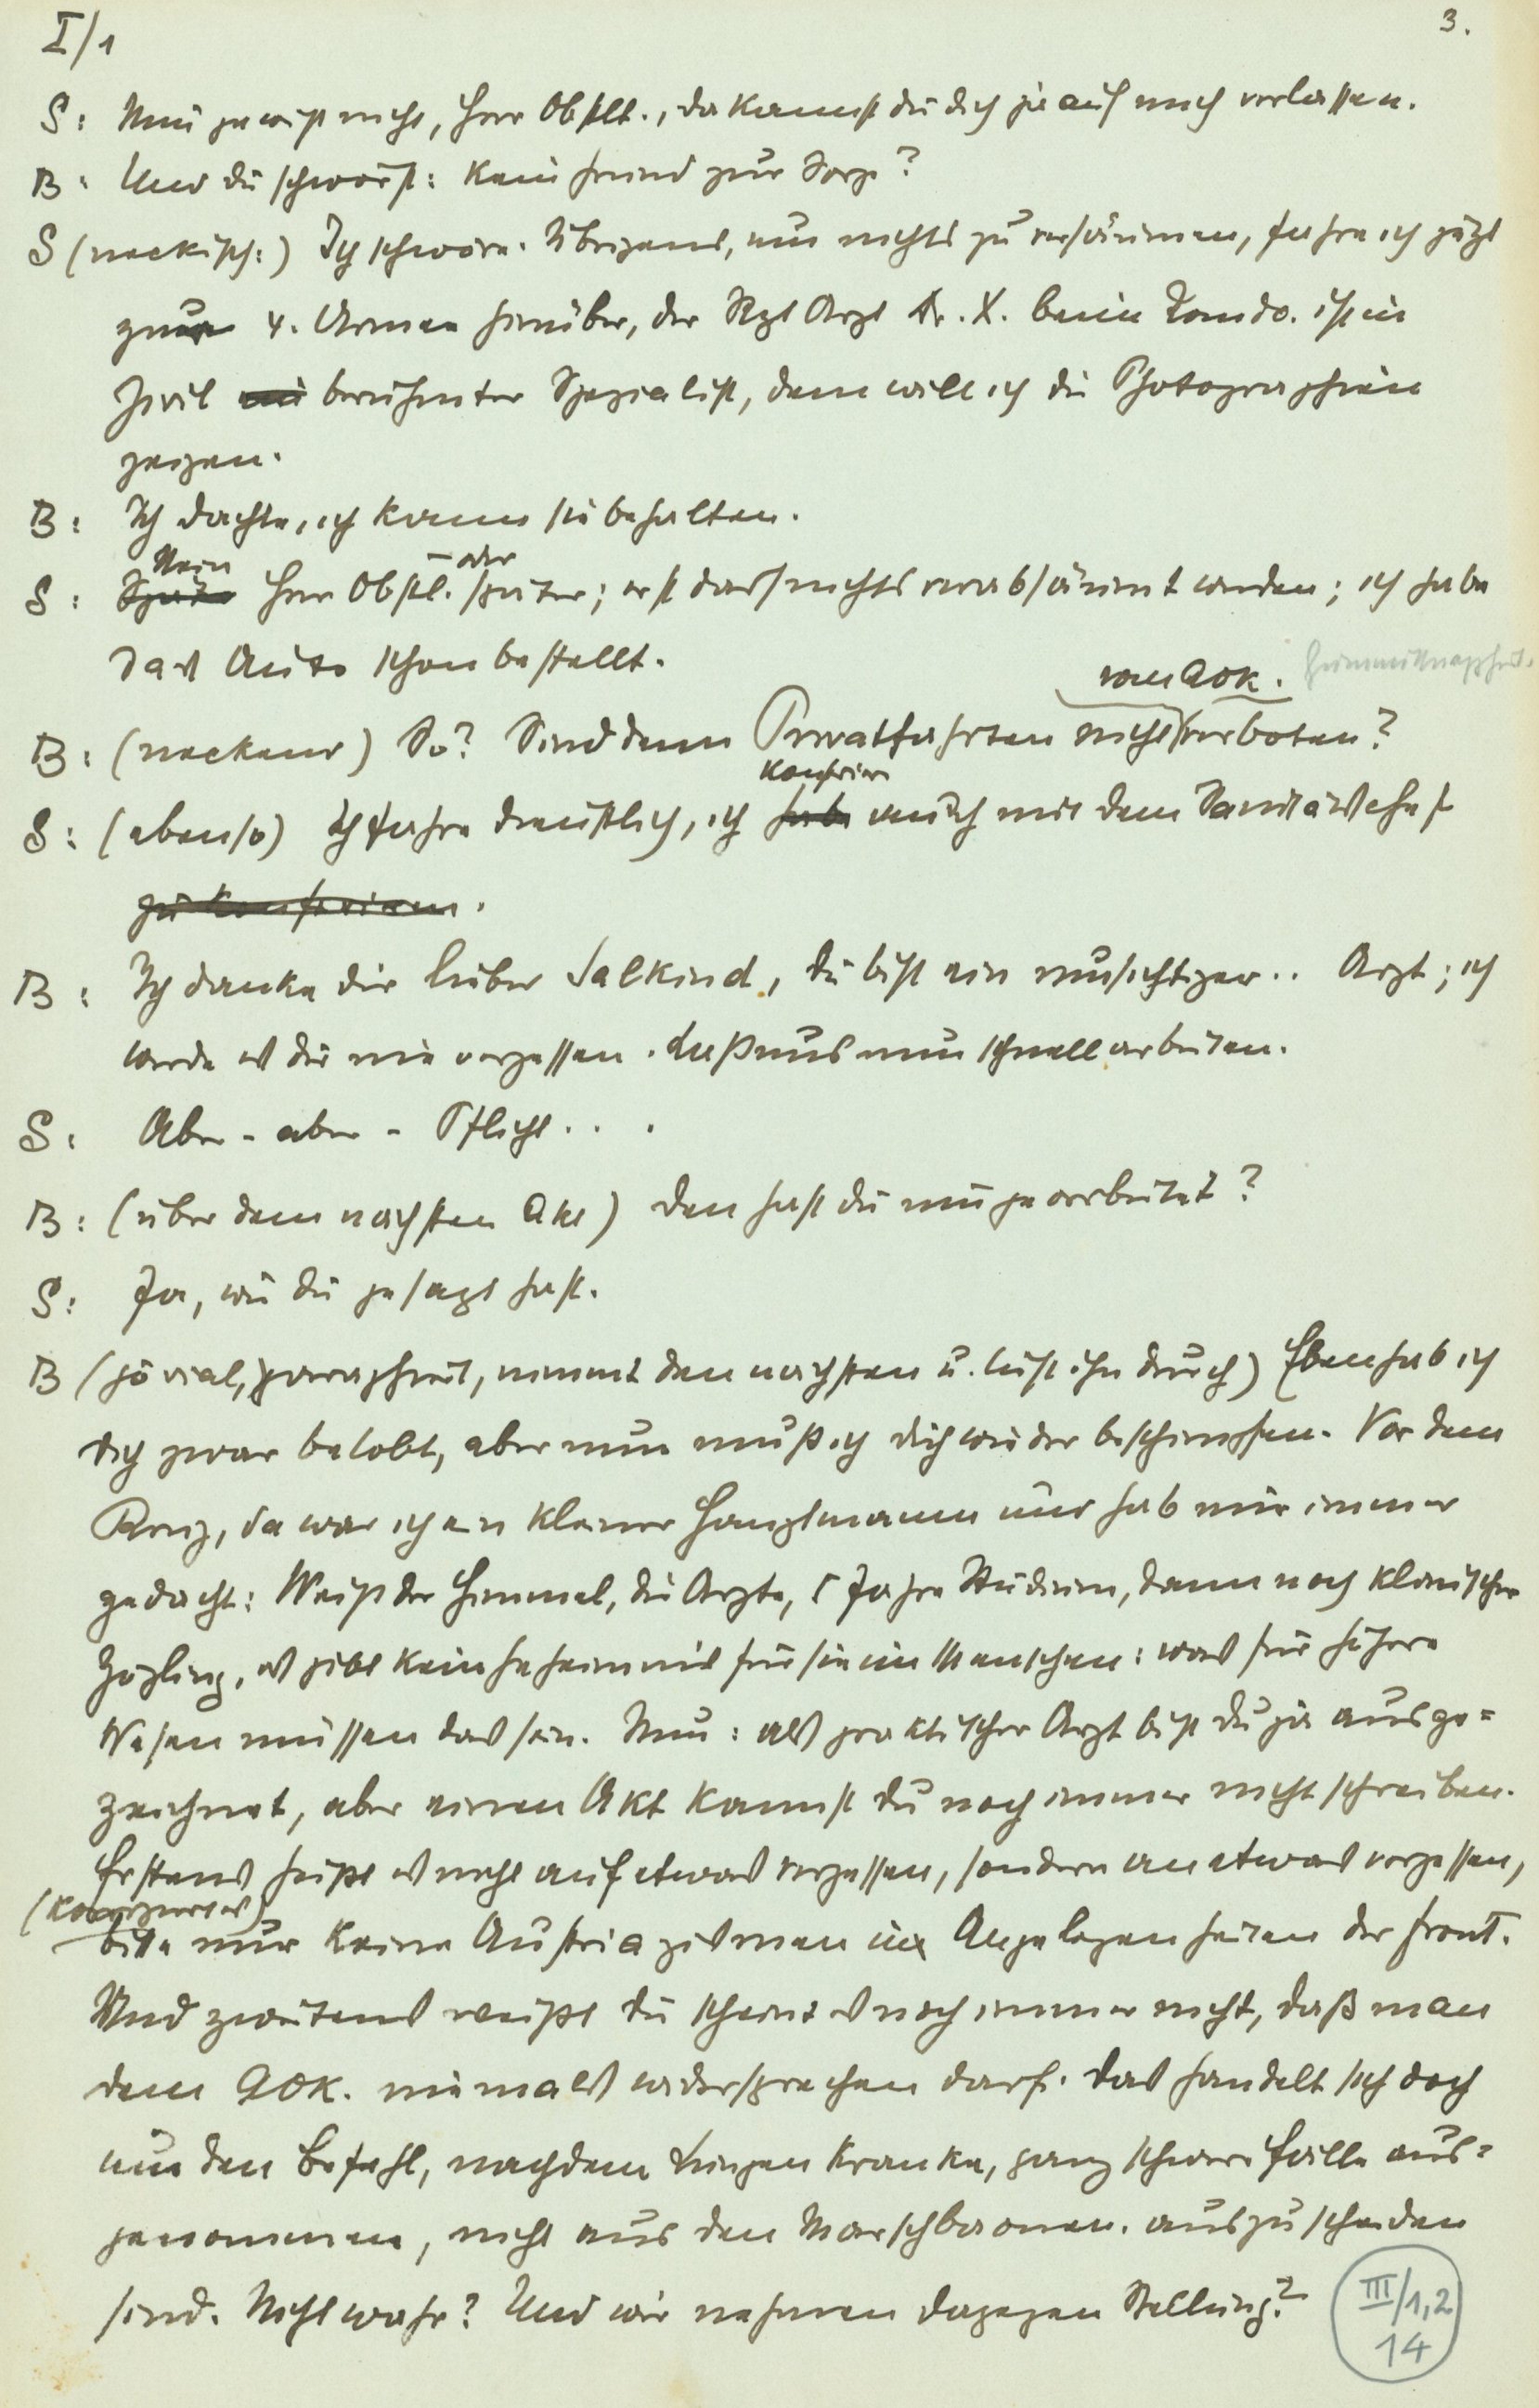 I/1
3.
S: Nein gewiß nicht, Herr Obstlt., da kannst du dich ja auf mich verlassen.
B: Und du schwörst: Kein Grund zur Sorge?
S (neckisch:) Ich schwöre. Übrigens, um nichts zu versäumen, fahre ich jetzt
zur 4. Armee hinüber, der Rgt Arzt Dr. X. beim Komdo. ist in
Zivil ein berühmter Spezialist, dem will ich die Photographien
zeigen.
B: Ich dachte, ich kann sie behalten.
Nein – oder
S: Später Herr Obstl. später; erst darf nichts verabsäumt werden; ich habe
das Auto schon bestellt.
vom AOK.
B: (neckend) So? Sind denn Privatfahrten nicht verboten?
konferiere
S: (ebenso) Ich fahre dienstlich, ich habe auch mit dem Sanitätschef
zu konferieren.
B: Ich danke dir lieber Salkind, du bist ein umsichtiger .. Arzt; ich
werde es dir nie vergessen. Laß uns nun schnell arbeiten.
S: Aber - aber - Pflicht . . .
B: (über dem nächsten Akt) Den hast du nun gearbeitet?
S: Ja, wie du gesagt hast.
B (jovial, paraphiert, nimmt den nächsten u. liest ihn durch) Eben hab ich
dich zwar belobt, aber nun muß ich dich wieder beschimpfen. Vor dem
Krieg, da war ich ein kleiner Hauptmann und hab mir immer
gedacht: Weiß der Himmel, die Ärzte, 5 Jahre Studium, dann noch klinischer
Zögling, es gibt kein Geheimnis für sie im Menschen: was für höhere
Wesen müssen das sein. Nun: als praktischer Arzt bist du ja ausge=
zeichnet, aber einen Akt kannst du noch immer nicht schreiben.
Erstens heißt es nicht auf etwas vergessen, sondern an etwas vergessen,
bitte nur keine Austriazismen in Angelegenheiten der Front.
Und zweitens weißt du scheint es noch immer nicht, daß man
dem AOK. niemals widersprechen darf. Das handelt sich doch
um den Befehl, nachdem Lungenkranke, ganz schwere Fälle aus=
genommen, nicht aus den Marschbaonen. auszuscheiden
sind. Nicht wahr? Und wir nehmen dagegen Stellung?
III/1,2
14